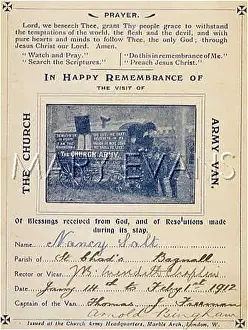 PRAYER.
Lord, we beseech Thee, grant Thy people grace to withstand
the temptations of the world, the flesh and the devil, and with
pure hearts and minds to follow Thee, the only God; through
Jesus Christ our Lord. Amen.
"Watch and Pray." "Do this in remembrance of Me."
"Search the Scriptures." "Preach Jesus Christ."
IN HAPPY REMEMBRANCE OF
THE VISIT OF
THE CHURCH
ARMY VAN.
THE CHURCH ARMY.
MARY EVANS
Of Blessings received from God, and of Resolutions made
during its stay.
Name Nancy Salt
Parish of St Chad's Bagnall
Rector or Vicar
Date Jany 14th to Feby 1st 1912
Captain of the Van Thomas J.
Arnold Bingham
Issued at the Church Army Headquarters, Marble Arch, London, W.